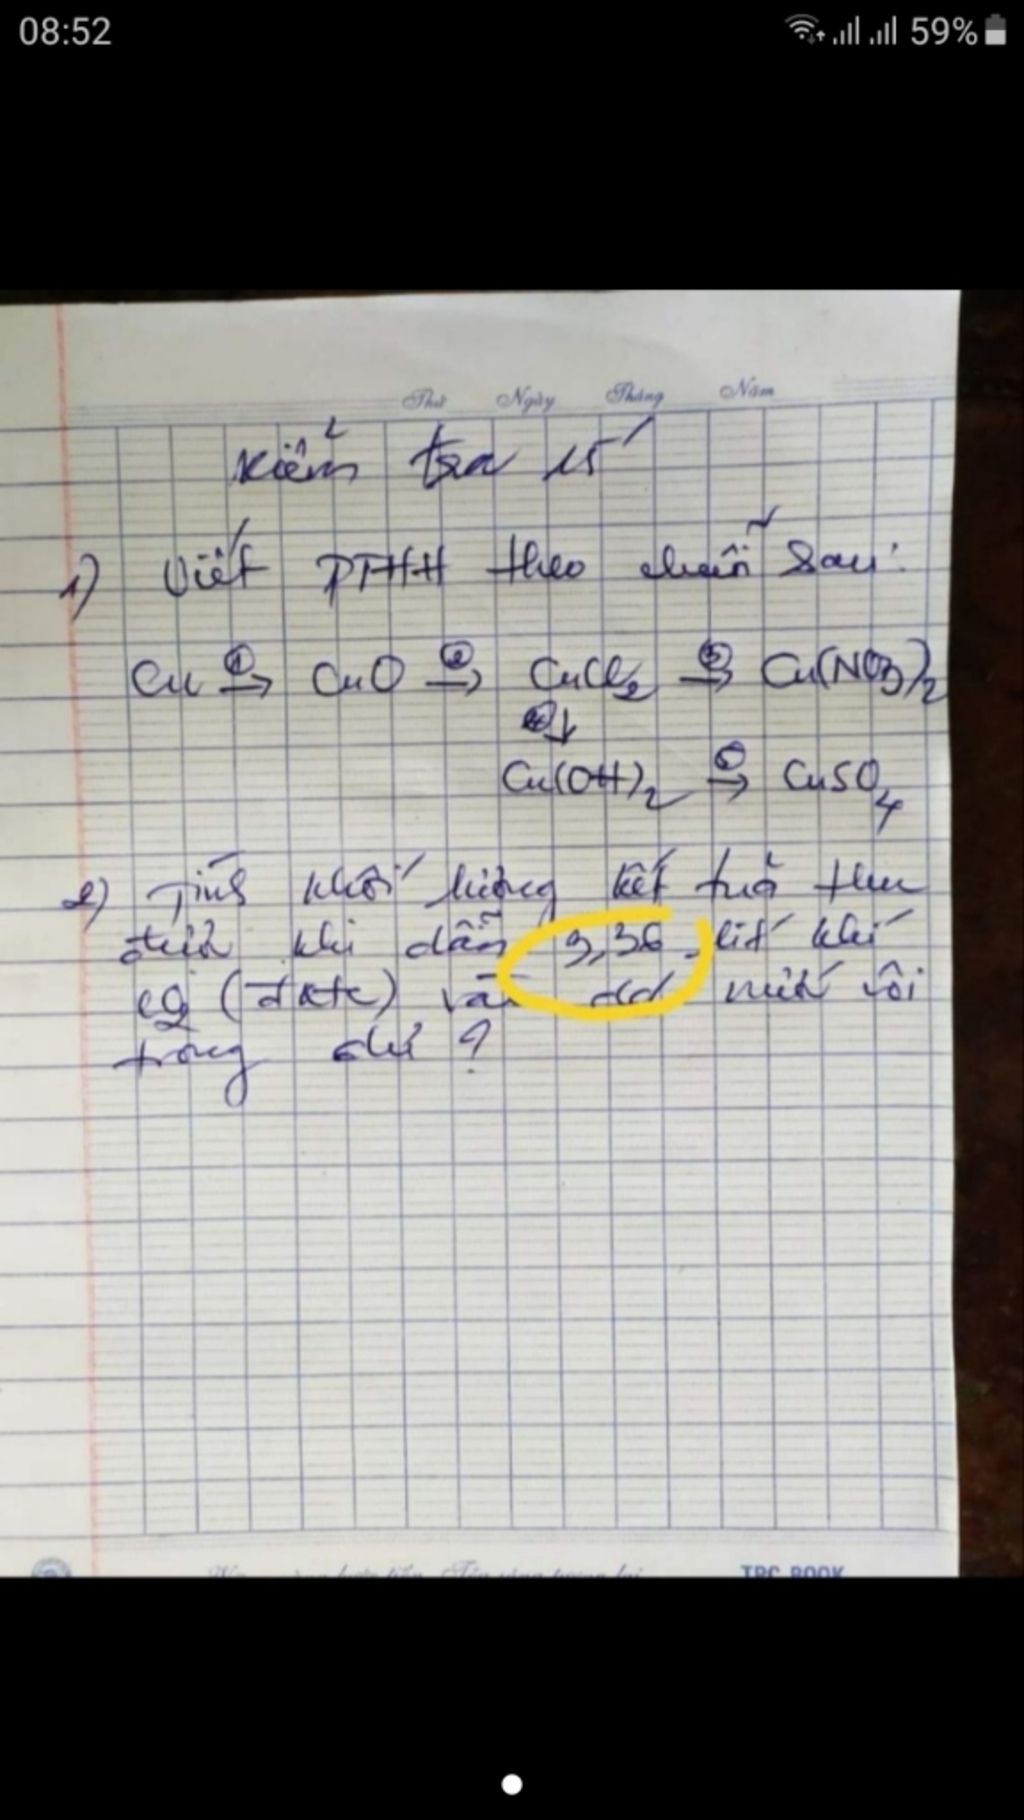 08:52 59%
Thứ Ngày Tháng Năm
Kiểm tra 15'
1) Viết PTHH theo chuỗi sau:
Cu ① → CuO ② → CuCl2 ③ → Cu(NO3)2
④ ↓
Cu(OH)2 ⑤ → CuSO4
2) Tính khối lượng kết tủa thu
được khi dẫn 3,36 lít khí
(đktc) vào dd nước vôi
trong dư ?
TRC BOOK